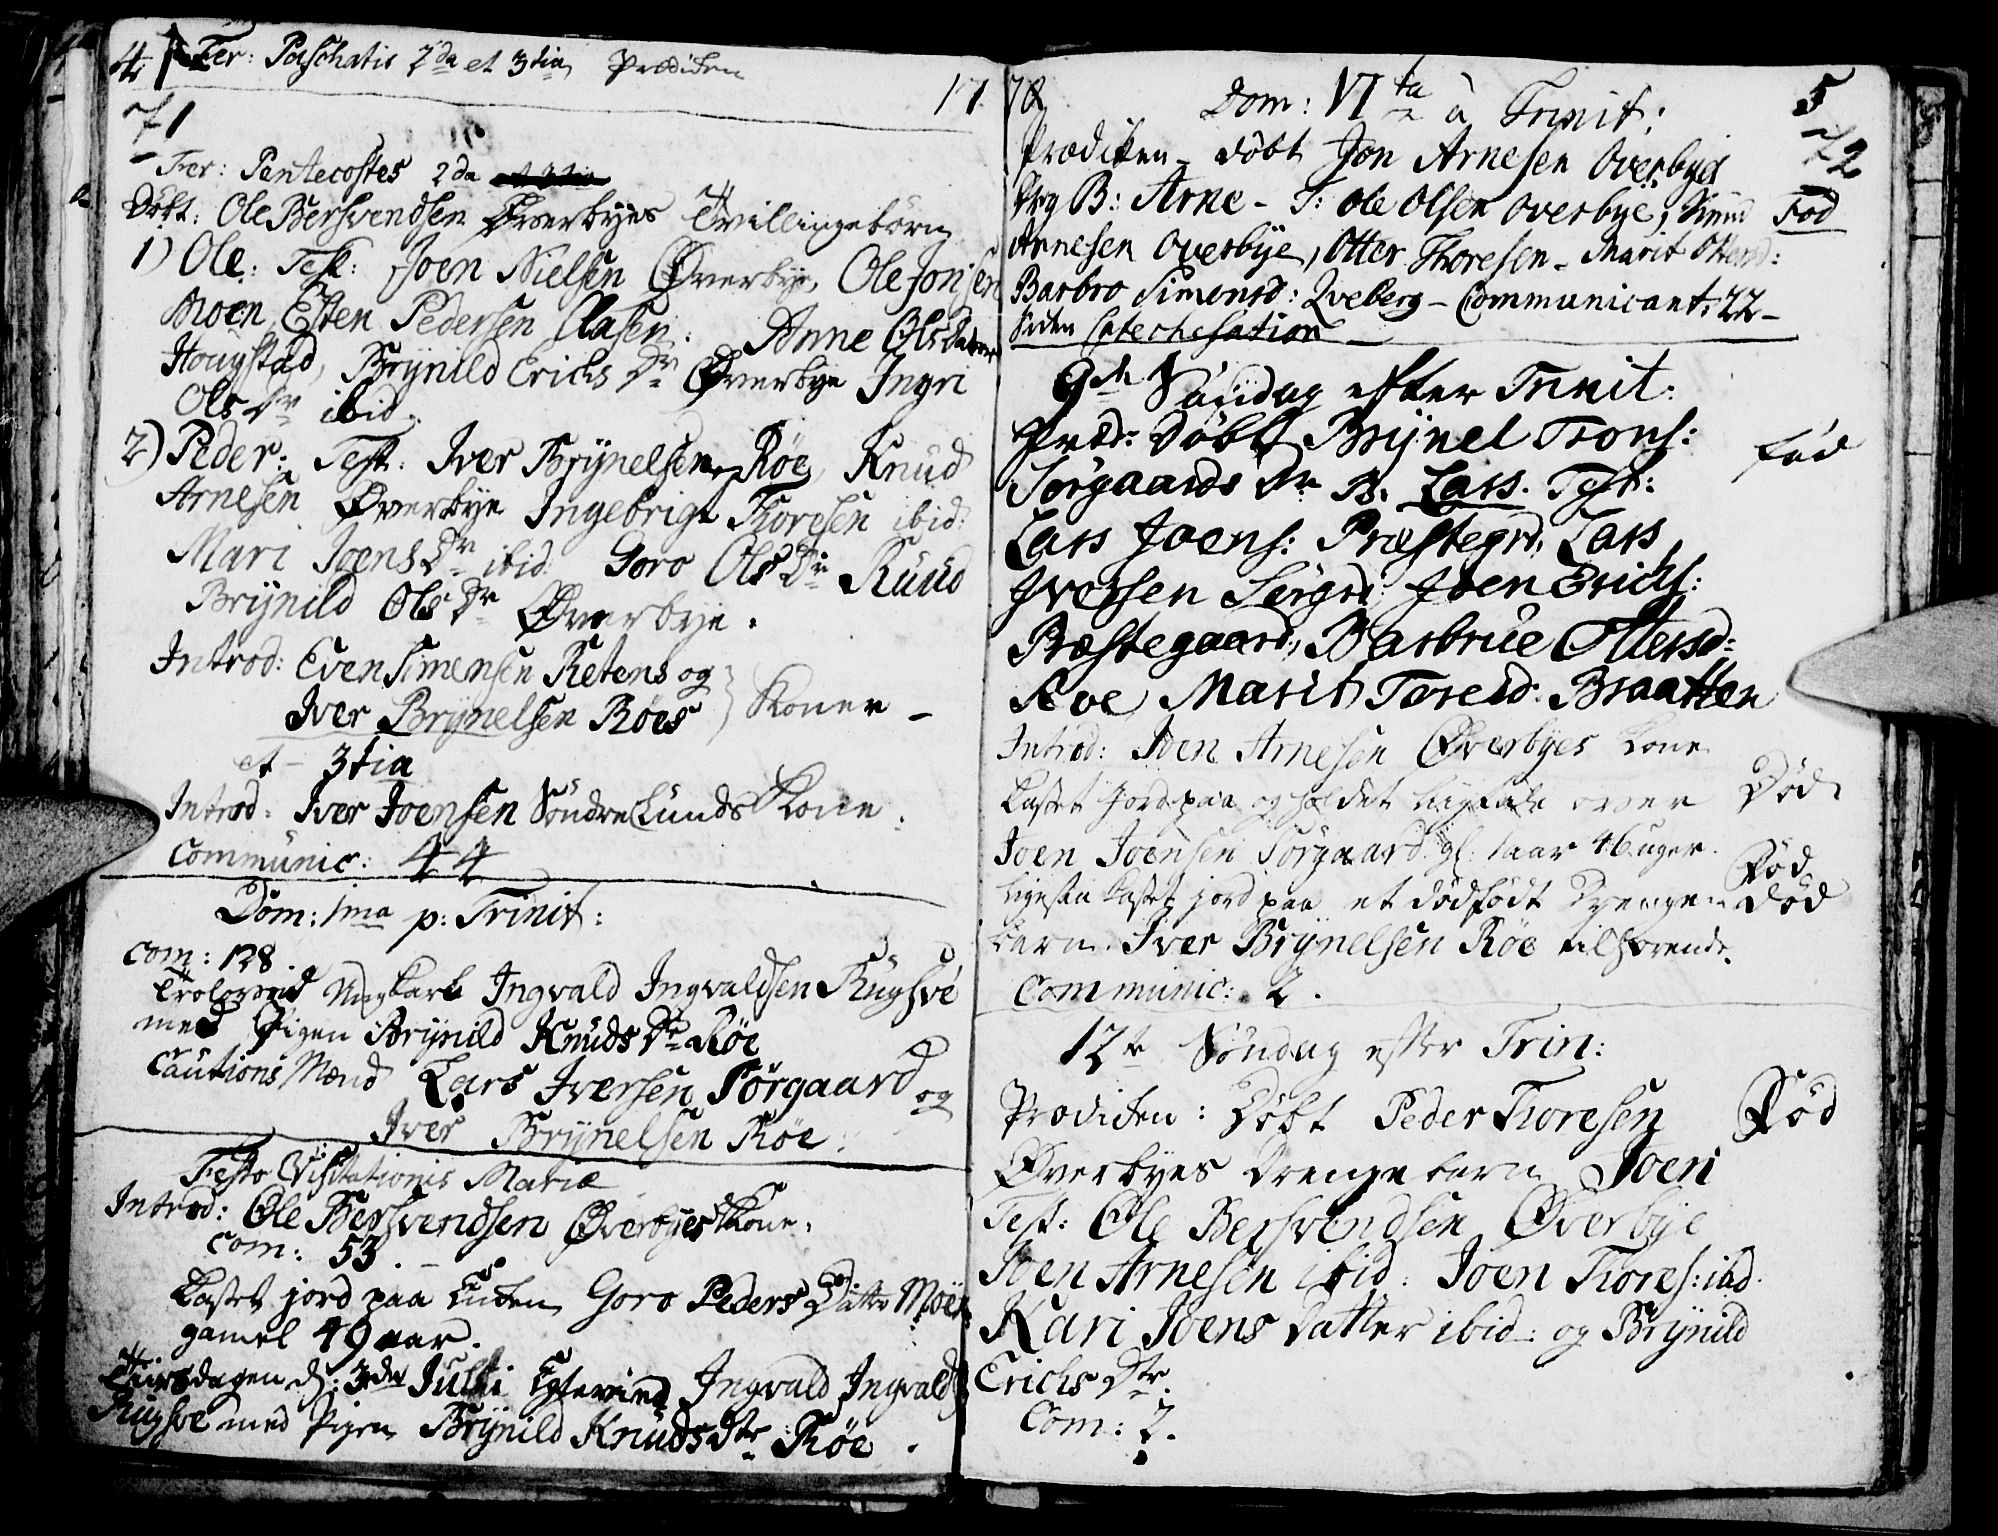 4 Fer: Paschatis 2da et 3tia Prædiken
71
17
Fer: Pentecostes 2da et 3tia
Döbt: Ole Bersvendsen Øverbyes Tvillingebörn
1) Ole: Test: Joen Nielsen Øverbye, Ole Jonsen
Moen, Esten Pedersen Aasen. Anne Olsdatter
Hougstad, Brynild Erichs Dr Øverbye Ingri
Ols Dr ibid.
2) Peder: Test: Iver Brynelsen Röe, Knud
Arnesen Øverbye Ingebrigt Thoresen ibid:
Mari Joens Dr ibid: Goro Ols Dr Ruud
Brynild Ols Dr Øverbye.
Introd: Even Simensen Retens og
Iver Brynelsen Röes } Koner –
et – 3tia
Introd: Iver Joensen Söndre Lunds Kone.
Communic: 44
Dom: 1ma p: Trinit:
Com: 128.
Trolovend Ungkarl Ingvald Ingvaldsen Rugsve
med Pigen Brynild Knuds Dr Röe
Cautions Mænd Lars Iversen Sörgaard og
Iver Brynelsen Röe.
Festo Visitationis Mariæ
Introd: Ole Bersvendsen Øverbyes Kone.
Com: 53. –
Kastet jord paa Enken Goro Peders Datter Moen
gamel 49 aar.
Tiirsdagen d: 3de Julii Egtevied Ingvald Ingvalds
Rugsve med Pigen Brynild Knuds Dtr Röe.
78 Dom: VI ta à Trinit: 5
72
Prædiken – döbt Jon Arnesen Overbyes
Drg B: Arne – T: Ole Olsen Overbye, Knud Fød
Arnesen Overbye, Otter Thoresen – Marit Ottersd:
Barbro Simensd: Qveberg – Communicant: 22 –
Siden Catechisation –
9de Söndag efter Trinit:
Præd: Döbt Brynel Trons: fød
Sörgaards Dr B. Lars. Test:
Lars Joens: Præstegrd, Lars
Iversen Sörgrd: Joen Erichs:
Præstegaard, Barbrue Ottersd:
Roe, Marit Toresd: Braatten
Introd: Joen Arnesen Øverbyes Kone
Kastet Jord paa og holdet Ligtale over Död
Joen Joensen Sörgaard gl: 1 aar 46 uger.
Fød
ligesaa kastet jord paa et dödfödt Drenge- død
barn. Iver Brynelsen Röe tilhörende.
Communic: 2.
12te Söndag efter Trin:
Prædiken: Döbt Peder Thoresen Fød
Øverbyes Drengebarn Joen
Test: Ole Bersvendsen Øverbye
Joen Arnesen ibid: Joen Thores: ibd.
Kari Joens Datter ibid: og Brynild
Erichs Dtr.
Com: 2.